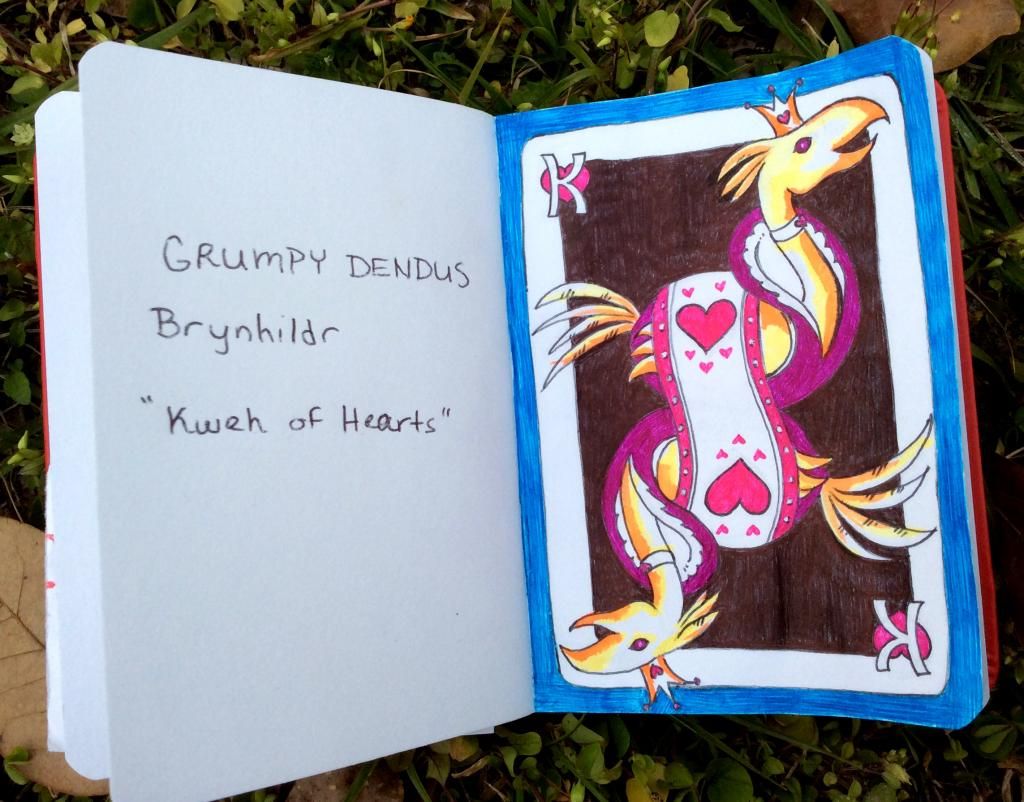 GRUMPY DENDUS
Brynhildr
"Kweh of Hearts"
K
K